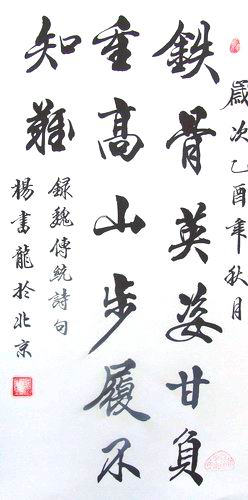 歲次乙酉年秋月
鉄骨英姿甘負
重高山步履不
知難
録魏傳統詩句
楊書龍於北京